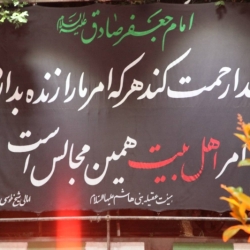 امام جعفر صادق علیه السلام
خدا رحمت کند هر که امر ما را زنده بدارد
امر اهل بیت همین مجالس است
هیئت عقیله بنی هاشم علیها السلام
امالی شیخ طوسی